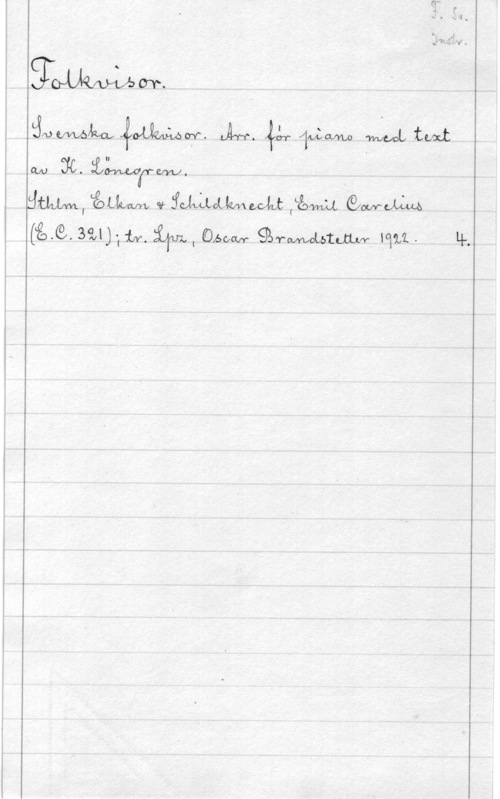 F. Sv.
Instr.
Folkvisor.
Svenska folkvisor. Arr. för piano med text
av K. Lönegren.
Sthlm, Elkan & Schildknecht, Emil Carelius
(E.C. 321); tr. Lpz, Oscar Brandstetter 1922. 4.